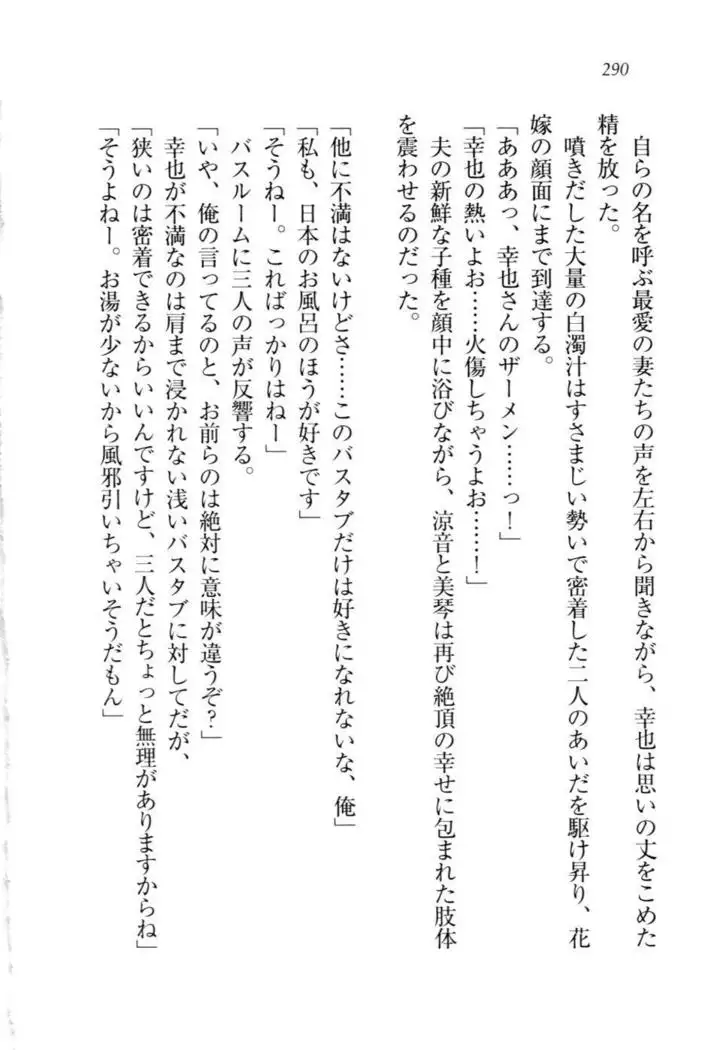 290
自らの名を呼ぶ最愛の妻たちの声を左右から聞きながら、幸也は思いの丈をこめた
精を放った。
噴きだした大量の白濁汁はすさまじい勢いで密着した二人のあいだを駆け昇り、花
嫁の顔面にまで到達する。
「あああっ、幸也さんのザーメン……っ！」
「幸也の熱いよお……火傷しちゃうよお……！」
夫の新鮮な子種を顔中に浴びながら、涼音と美琴は再び絶頂の幸せに包まれた肢体
を震わせるのだった。
「他に不満はないけどさ……このバスタブだけは好きになれないな、俺」
「私も、日本のお風呂のほうが好きです」
「そうねー。こればっかりはねー」
バスルームに三人の声が反響する。
「いや、俺の言ってるのと、お前らのは絶対に意味が違うぞ？」
幸也が不満なのは肩まで浸かれない浅いバスタブに対してだが、
「狭いのは密着できるからいいんですけど、三人だとちょっと無理がありますからね」
「そうよねー。お湯が少ないから風邪引いちゃいそうだもん」